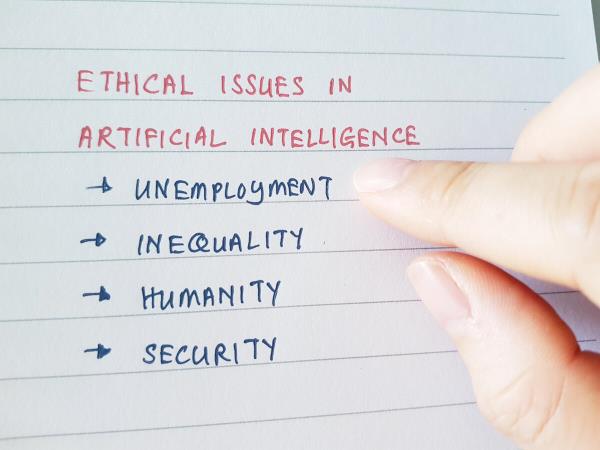 ETHICAL ISSUES IN
ARTIFICIAL INTELLIGENCE
→ UNEMPLOYMENT
→ INEQUALITY
→ HUMANITY
→ SECURITY